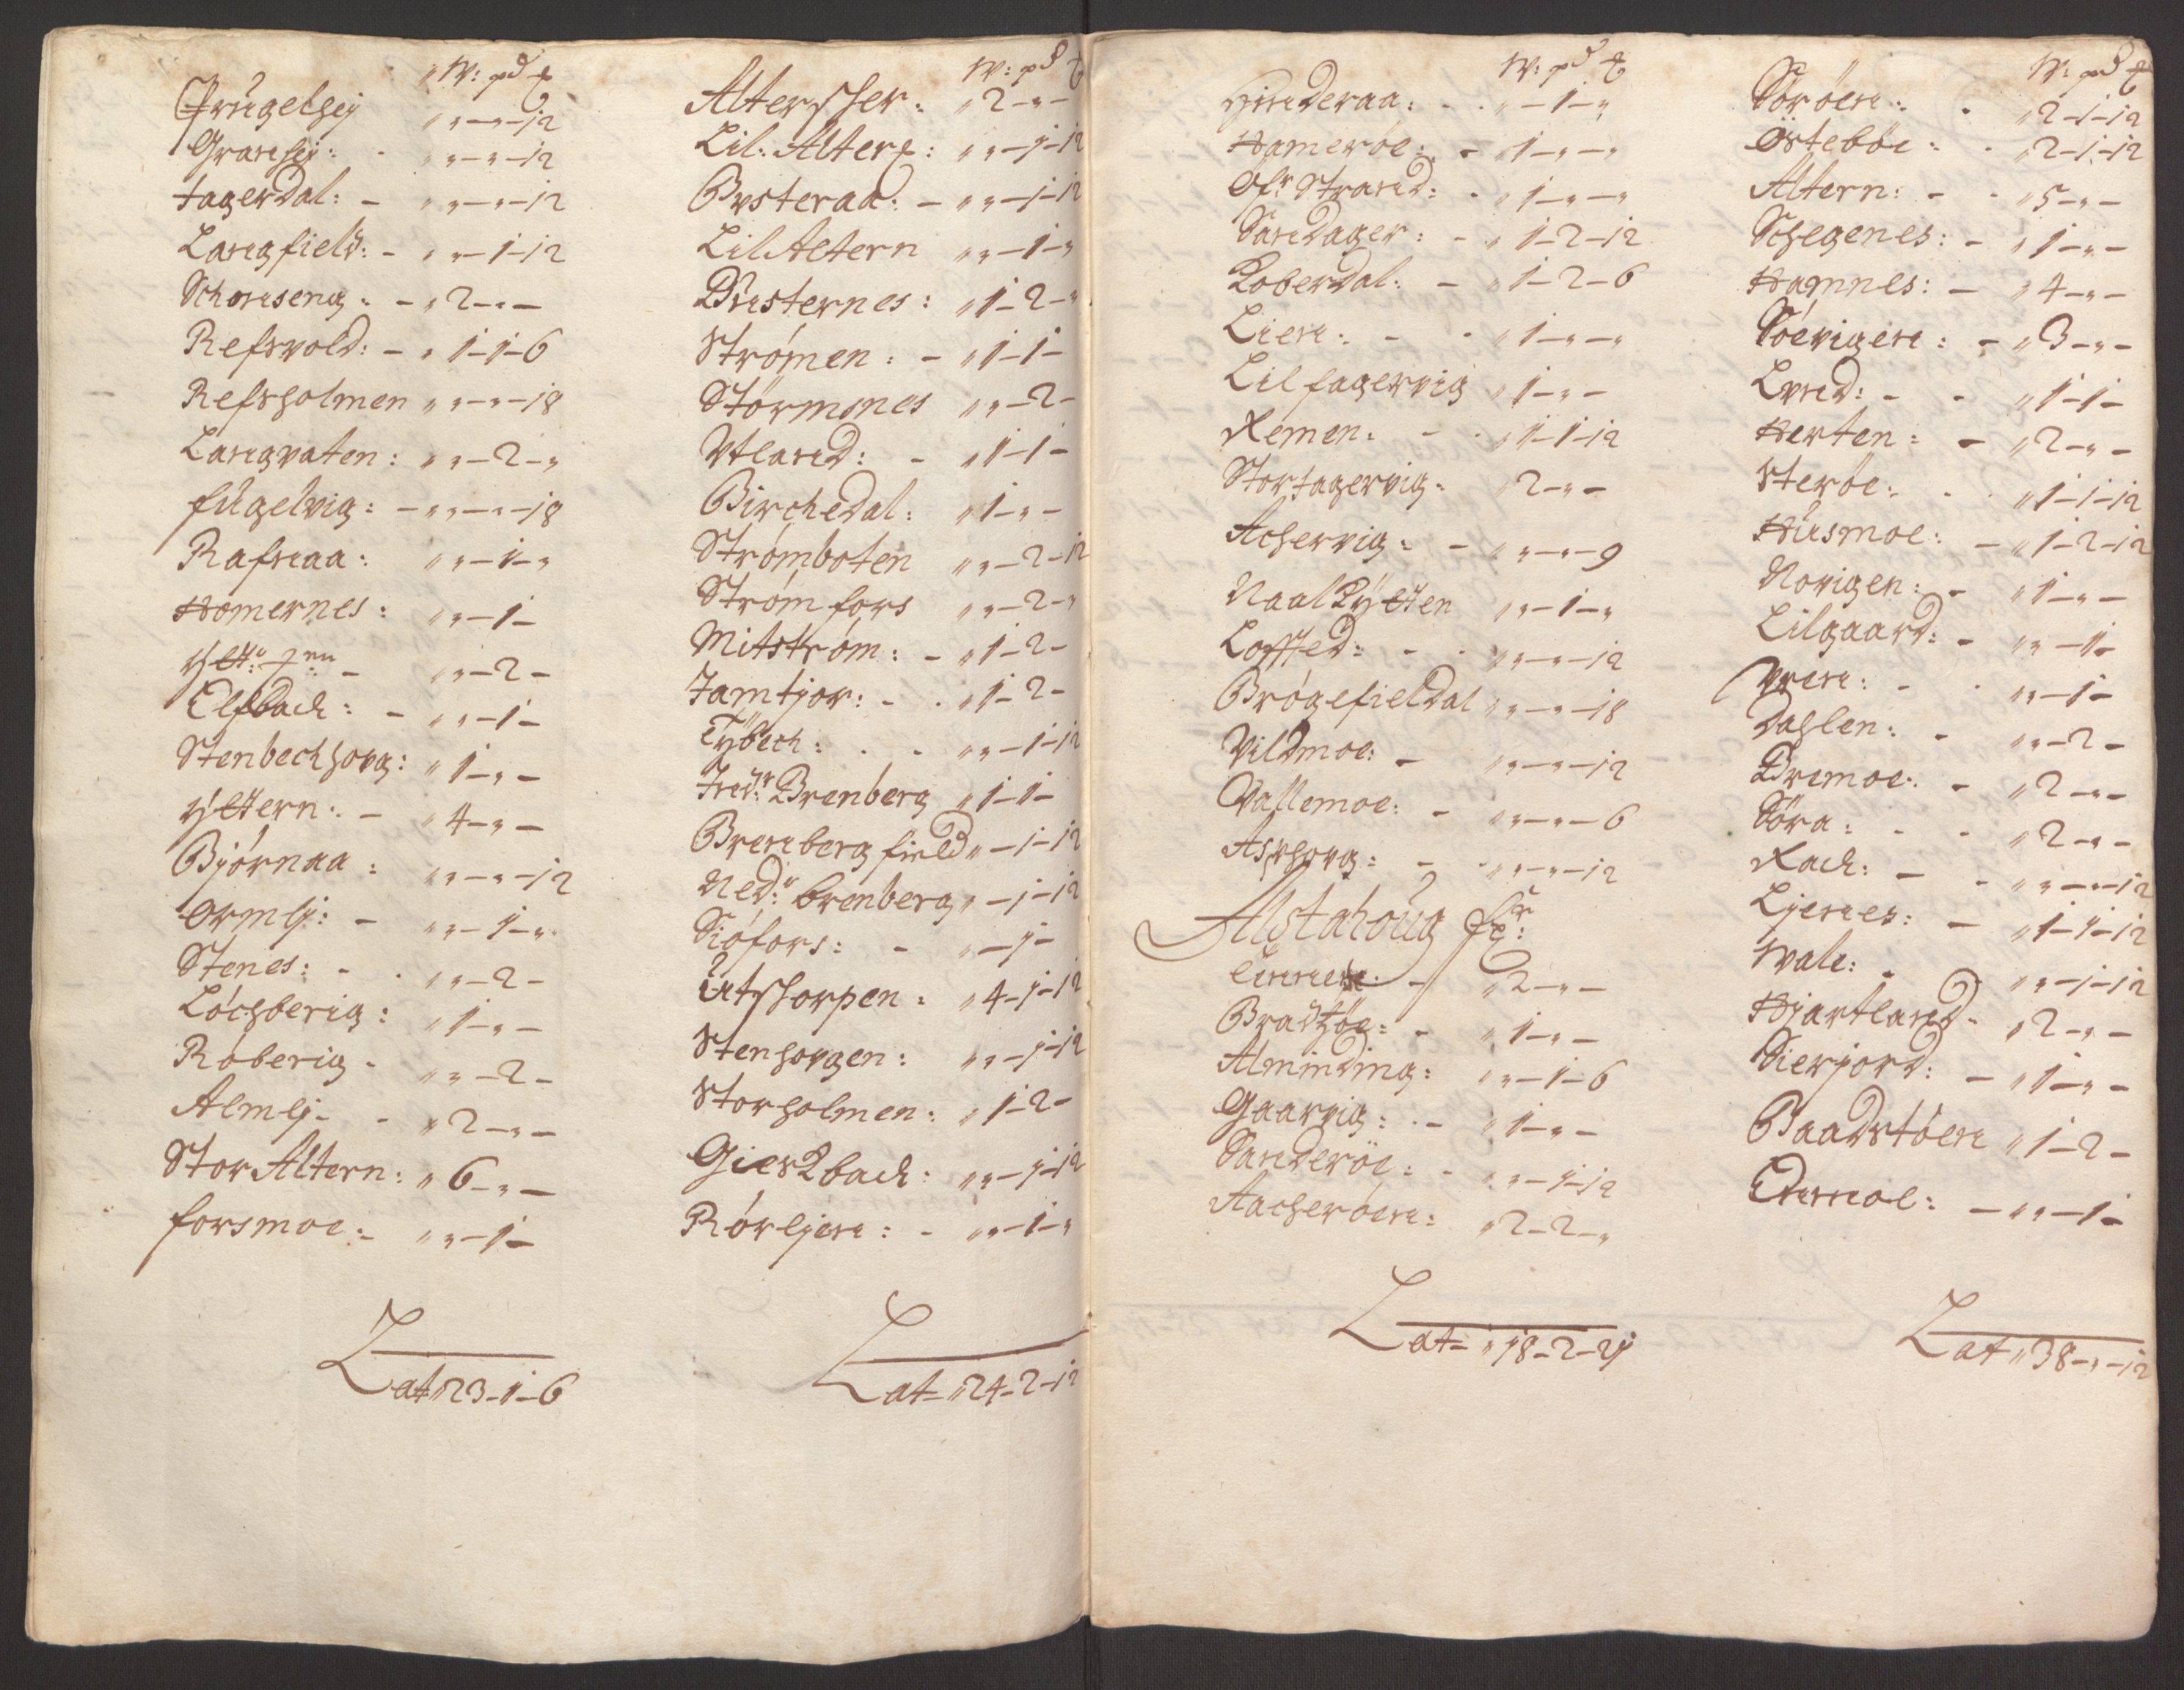 W: pd ℔
Frugelhej „ „-„-12
Granhej: - „ „-„-12
fagerdal: - „ „-„-12
Langfield: - „ „-1-12
Schonseng: - „ 2-„-
Refsvold: - „ 1-1-6
Refsholmen „ „-„-18
Langvaten: „ „-2-„
fugelvig: - „ „-„-18
Rafnaa: „ „-1-„
Homernes: „ „-1-
„ „-2-
Elfbach: - „ „-1-
Stenbechhoug: „ 1-„-
Ÿttern: - „ 4-„-
Bjórnaa: „ „-„-12
Ormlj: - „ „-1-„
Stenes: - „ „-2-
Lóchberig: „ 1-„-
Róberig - „ „-2-
Almlj - - „ 2-„-
Stor Altern: „ 6-„-
forsmoe: „ „-1-
Lat „ 23-1-6
W: pd ℔
Altersher: „ 2-„-
Lil: Alter: „ „-1-12
Bysteraa: - „ „-1-12
Lil Altern „ „-1-„
Dusternes: „ 1-2-„
Strómen: - „ 1-1-
Störmsnes „ „-2-
Vtland: - „ 1-1-
Birchedal: „ 1-„-
Strómboten „ „-2-12
Strómfors „ „-2-„
Mitstróm: - „ 1-2-
Jamtjor: - „ 1-2-
Tÿbech: - „ „-1-12
Fredr: Brenberg „ 1-1-
Brenbergfield „ -1-12
Nedr: brenberg „ -1-12
Siófors: - „ -1-
Utshorpen: „ 4-1-12
Stenhovgen: „ „-1-12
Storholmen: „ 1-2-
Giersbach: „ „-1-12
Rórljen: - „ „-1-„
Lat- „ 24-2-12
W: pd ℔
Hinderaa: - „ -1-„
Hameróe: - „ 1-„-„
Ofr Strand: - „ 1-„-„
Sandager: - „ 1-2-12
Roberdal: - „ 1-2-6
Lien: - - „ 1-„-„
Lilfagervig „ 1-„-
Remen: - „ 1-1-12
Storfagervig: „ 2-„-
Achervig: - „ „-„-9
„ „-1-„
Lofsted: - „ „-„-12
Brógefieldal „ „-„-18
Vildmoe: - „ „-„-12
Vallemoe: - „ „-„-6
Ashhovg: - „ „-„-12
Alstahoug fr:
„ 2-„-
„ 1-„-
Alminding: „ „-1-6
Gaarvig: - „ 1-„-
Sanderöe: - „ „-1-12
Aacheróen: „ 2-2-„
Lat- „ 18-2-21
W: pd ℔
Söróen: - „ 2-1-12
Östebóe: - „ 2-1-12
Altern: - - „ 5-„-
Schegenes: - „ 1-„-
Hamnes: - „ 4-„-
Sóevigen: - „ 3-„-
Lund: - - „ 1-1-
Herten: - „ 2-„-
Steróe: - „ 1-1-12
Husmoe: - „ 1-2-12
Norigen: - „ 1-„-
Lilgaard: - „ „-1-
„ „-1-
Dahlen: - „ „-2-
Bremoe: - „ 2-„-
Söra: - - „ 2-„-
Rach: - - „ „-„-12
Ljenes: - „ 1-1-12
Wale: - „ „-1-12
Hjartland - „ 2-„-
Sierjord: - „ 1-„-
Baadstóen „ 1-2-
„ „-1-
Lat „ 38-„-12